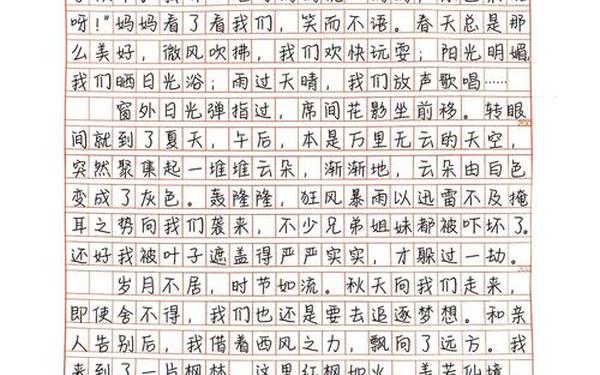 呀!"妈妈看了看我们,笑而不语。春天总是那
么美好,微风吹拂,我们欢快玩耍;阳光明媚,
我们晒日光浴;雨过天晴,我们放声歌唱……
窗外日光弹指过,席间花影坐前移。转眼
间就到了夏天,午后,本是万里无云的天空,
突然聚集起一堆堆云朵,渐渐地,云朵由白色
变成了灰色。轰隆隆,狂风暴雨以迅雷不及掩
耳之势向我们袭来,不少兄弟姐妹都被吓坏了。
还好我被叶子遮盖得严严实实,才躲过一劫。
岁月不居,时节如流。秋天向我们走来,
即使舍不得,我们也还是要去追逐梦想。和亲
人告别后,我借着西风之力,飘向了远方。我
来到了一片枫林,这里红枫如火,美若仙境